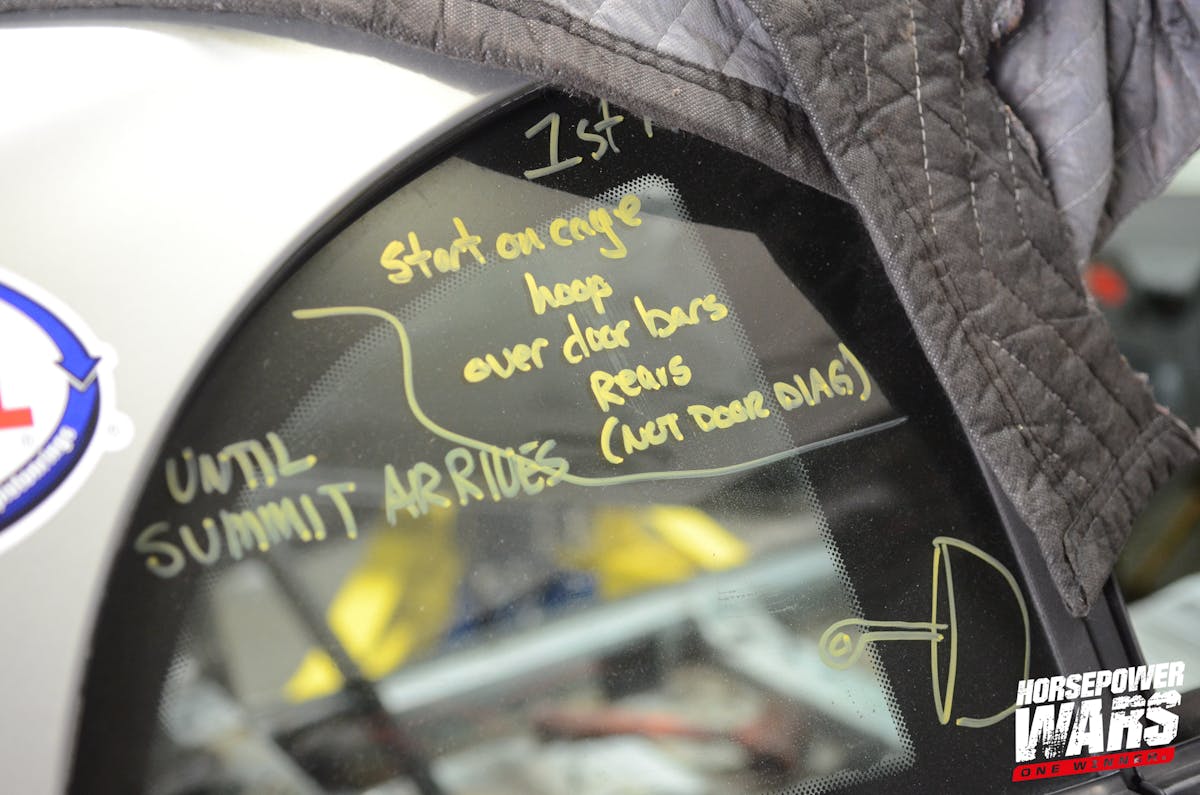 1st
Start on cage
hoop
over door bars
Rears
(NOT DOOR DIAG)
UNTIL
SUMMIT ARRIVES
HORSEPOWER
WARS
ONE WINNER.